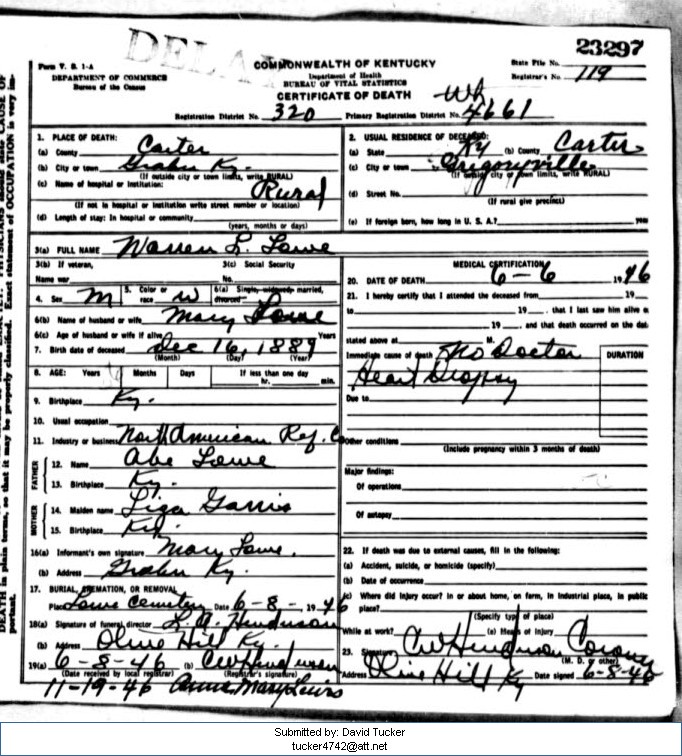 DELAYED
23297
Form V. S. 1-A
DEPARTMENT OF COMMERCE
Bureau of the Census
COMMONWEALTH OF KENTUCKY
Department of Health
BUREAU OF VITAL STATISTICS
CERTIFICATE OF DEATH
State File No.
Registrar's No. 119
Registration District No. 320 Primary Registration District No. 4661
1. PLACE OF DEATH:
(a) County Carter
(b) City or town Grahn Ky.
(If outside city or town limits, write RURAL)
(c) Name of hospital or institution: Rural
(If not in hospital or institution write street number or location)
(d) Length of stay: In hospital or community
(years, months or days)
2. USUAL RESIDENCE OF DECEASED:
(a) State Ky (b) County Carter
(c) City or town Grigoryville
(If outside city or town limits, write RURAL)
(d) Street No.
(If rural give precinct)
(e) If foreign born, how long in U. S. A.? years
3(a) FULL NAME Warren L. Lowe
3(b) If veteran,
Name war
3(c) Social Security
No.
4. Sex M 5. Color or race W 6(a) Single, widowed, married, divorced
6(b) Name of husband or wife Mary Lowe
6(c) Age of husband or wife if alive Years
7. Birth date of deceased Dec 16, 1889
(Month) (Day) (Year)
8. AGE: Years Months Days If less than one day
hr. min.
9. Birthplace Ky.
10. Usual occupation
11. Industry or business North American Ref. Co
FATHER
12. Name Abe Lowe
13. Birthplace Ky.
MOTHER
14. Maiden name Liza Garris
15. Birthplace Ky.
16(a) Informant's own signature Mary Lowe.
(b) Address Grahn Ky.
17. BURIAL, CREMATION, OR REMOVAL
Place Lowe Cemetery Date 6-8-, 1946
18(a) Signature of funeral director L. A. Henderson
(b) Address Olive Hill Ky.
19(a) 6-8-46 (b) CW Henderson
(Date received by local registrar) (Registrar's signature)
11-19-46 Anne Mary Lewis
MEDICAL CERTIFICATION
20. DATE OF DEATH 6-6 1946
21. I hereby certify that I attended the deceased from 19
to 19 , that I last saw him alive on
19 , and that death occurred on the date
stated above at M.
Immediate cause of death No Doctor
DURATION
Heart Dropsy
Due to
Other conditions
(Include pregnancy within 3 months of death)
Major findings:
Of operations
Of autopsy
22. If death was due to external causes, fill in the following:
(a) Accident, suicide, or homicide (specify)
(b) Date of occurrence
(c) Where did injury occur? In or about home, on farm, in industrial place, in public
place?
(Specify type of place)
While at work? (e) Means of injury
23. Signature CW Henderson Coroner
(M. D. or other)
Address Olive Hill Ky Date signed 6-8-46
DEATH in plain terms, so that it may be properly classified. Exact statement of OCCUPATION is very important.
Submitted by: David Tucker
tucker4742@att.net